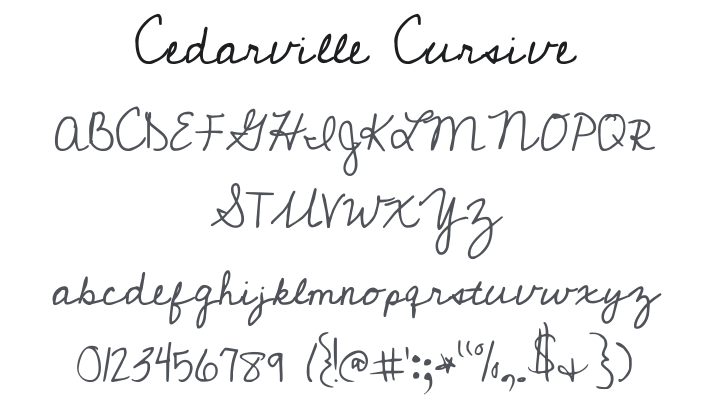 Cedarville Cursive
ABCDEFGHIJKLMNOPQR
STUVWXYZ
abcdefghijklmnopqrstuvwxyz
0123456789 ({!@#':;*"“%,.-$&})